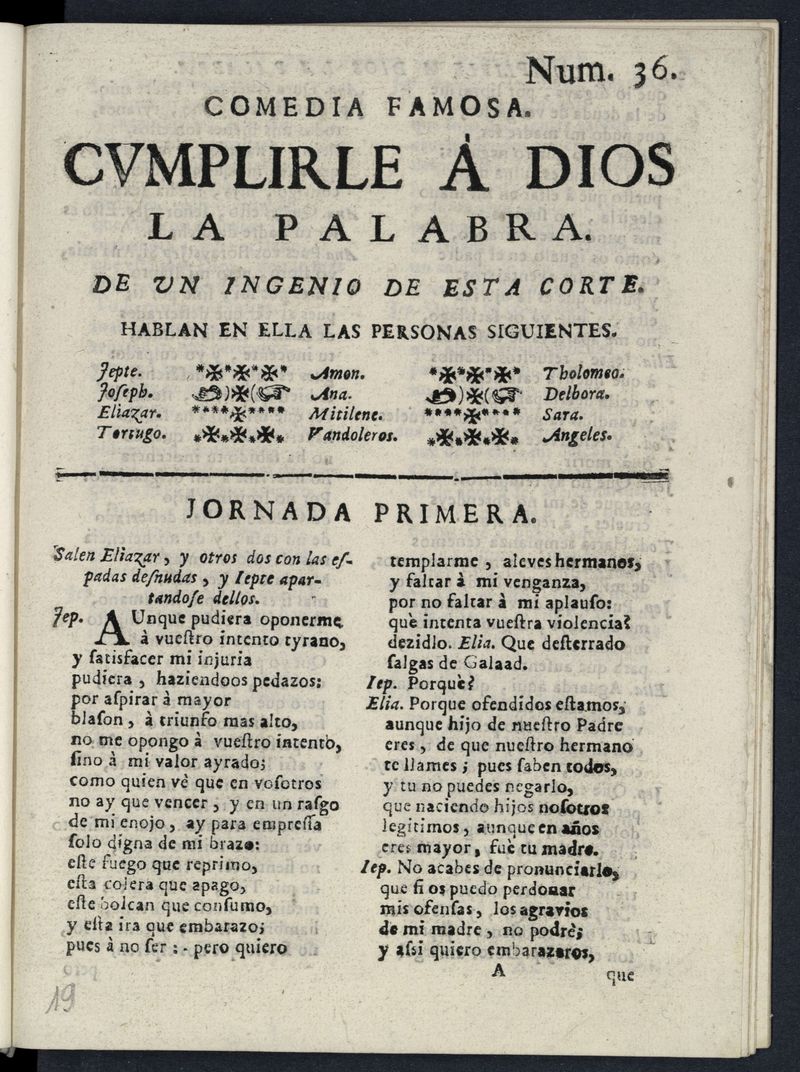 Num. 36.
COMEDIA FAMOSA.
CVMPLIRLE Á DIOS
LA PALABRA.
DE UN INGENIO DE ESTA CORTE.
HABLAN EN ELLA LAS PERSONAS SIGUIENTES.
Jepte. Amon. Tholomeo.
Joſeph. Ana. Delbora.
Eliazar. Mitilene. Sara.
Tortugo. Vandoleros. Angeles.
JORNADA PRIMERA.
Salen Eliazar, y otros dos con las eſ-
padas deſnudas, y Iepte apar-
tandoſe dellos.
Jep. AUnque pudiera oponerme
à vueſtro intento tyrano,
y ſatisfacer mi injuria
pudiera, haziendoos pedazos:
por aſpirar à mayor
blaſon, à triunfo mas alto,
no me opongo à vueſtro intento,
ſino à mi valor ayrado;
como quien vè que en voſotros
no ay que vencer, y en un raſgo
de mi enojo, ay para empreſſa
ſolo digna de mi brazo:
eſte fuego que reprimo,
eſta colera que apago,
eſte bolcan que conſumo,
y eſta ira que embarazo;
pues à no ſer :- pero quiero
templarme, aleves hermanos,
y faltar à mi venganza,
por no faltar à mi aplauſo:
què intenta vueſtra violencia?
dezidlo. Elia. Que deſterrado
ſalgas de Galaad.
Iep. Porquè?
Elia. Porque ofendidos eſtamos,
aunque hijo de nueſtro Padre
eres, de que nueſtro hermano
te llames; pues ſaben todos,
y tu no puedes negarlo,
que naciendo hijos noſotros
legitimos, aunque en años
eres mayor, fuè tu madre.
Iep. No acabes de pronunciarlo,
que ſi os puedo perdonar
mis ofenſas, los agravios
de mi madre, no podrè;
y aſsi quiero embarazaros,
A
que
19